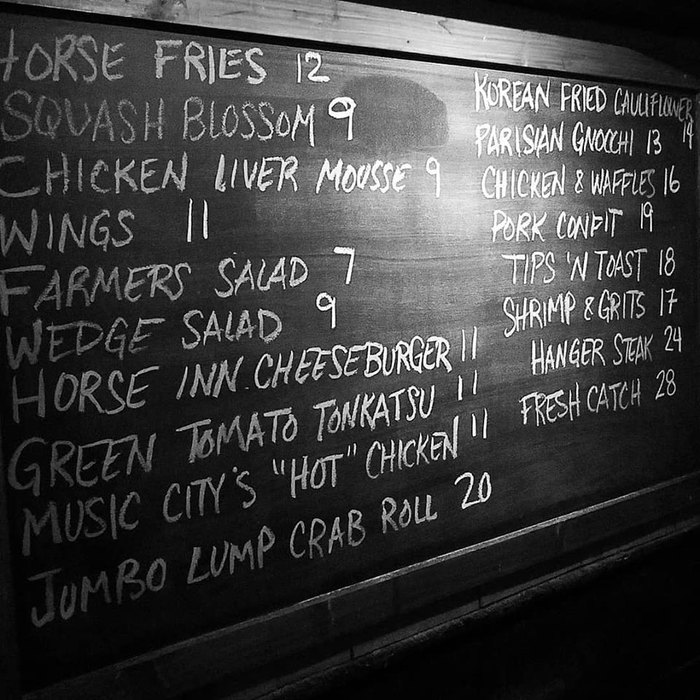 HORSE FRIES 12
SQUASH BLOSSOM 9
CHICKEN LIVER MOUSSE 9
WINGS 11
FARMERS SALAD 7
WEDGE SALAD 9
HORSE INN CHEESEBURGER 11
GREEN TOMATO TONKATSU 11
MUSIC CITY'S "HOT" CHICKEN 11
JUMBO LUMP CRAB ROLL 20
KOREAN FRIED CAULIFLOWER
PARISIAN GNOCCHI 13
CHICKEN & WAFFLES 16
PORK CONFIT 19
TIPS 'N TOAST 18
SHRIMP & GRITS 17
HANGER STEAK 24
FRESH CATCH 28